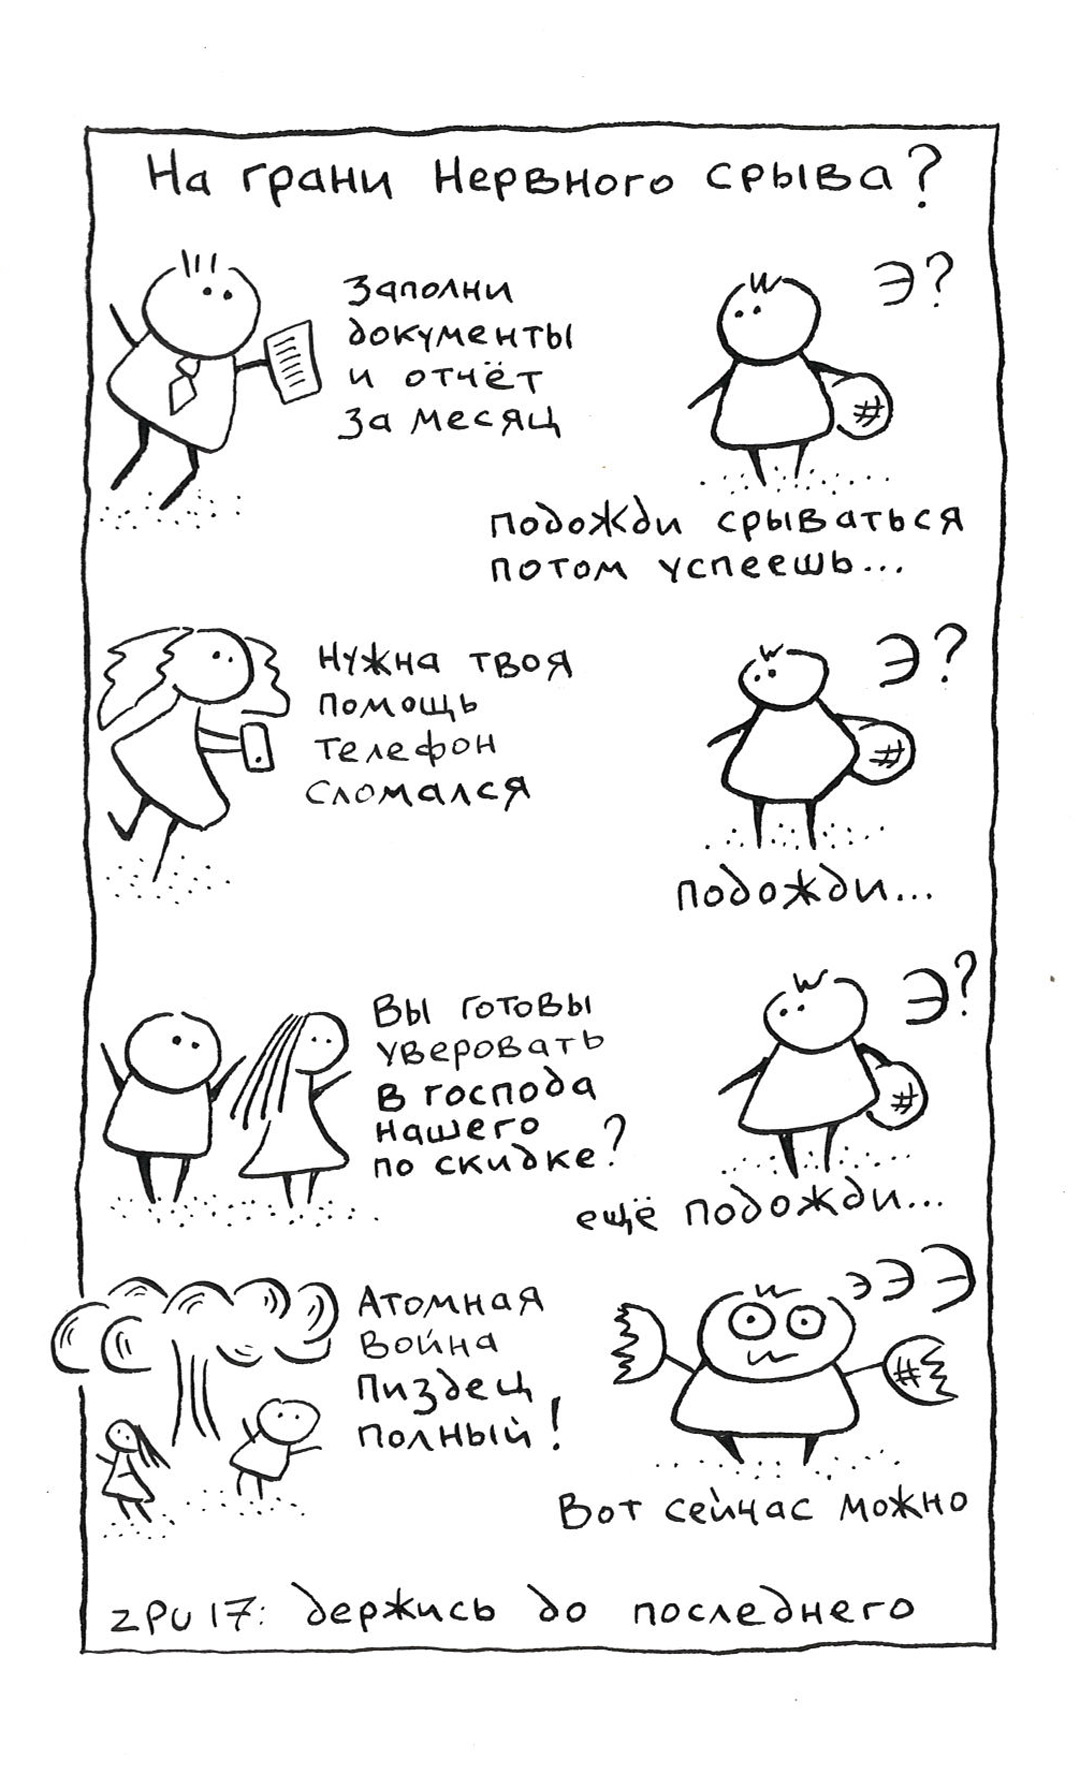 На грани нервного срыва?
Заполни
документы
и отчёт
за месяц
Э?
#
подожди срываться
потом успеешь...
Нужна твоя
помощь
телефон
сломался
Э?
#
подожди...
Вы готовы
уверовать
в господа
нашего
по скидке?
Э?
#
ещё подожди...
Атомная
война
пиздец
полный!
э Э Э
#
Вот сейчас можно
ZPU 17: держись до последнего